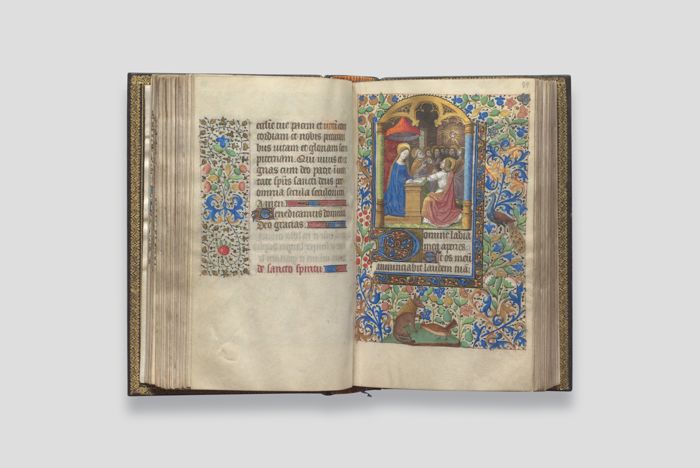 ecclesie tue pacem et veram con
cordiam et nobis peccatori
bus vitam et gloriam sem
piternam. Qui vivis et re
gnas cum deo patre in uni
tate spiritus sancti deus per
omnia secula seculorum
Amen.
Benedicamus domino
Deo gracias.
de sancto spiritu
Domine labia
mea aperies.
Et os meum
annunciabit laudem tuam